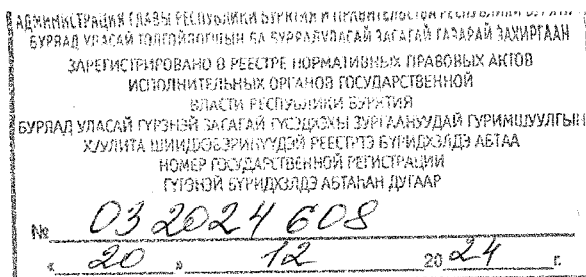 АДМИНИСТРАЦИЯ ГЛАВЫ РЕСПУБЛИКИ БУРЯТИЯ И ПРАВИТЕЛЬСТВА РЕСПУБЛИКИ
БУРЯАД УЛАСАЙ ЗАСАГАЙ ГАЗАРАЙ ЗАХИРГААН
ЗАРЕГИСТРИРОВАНО В РЕЕСТРЕ НОРМАТИВНЫХ ПРАВОВЫХ АКТОВ
ИСПОЛНИТЕЛЬНЫХ ОРГАНОВ ГОСУДАРСТВЕННОЙ
ВЛАСТИ РЕСПУБЛИКИ БУРЯТИЯ
БУРЯАД УЛАСАЙ ГҮРЭНЭЙ ЗАСАГАЙ ГҮЙСЭДХЭХЫ ЗУРГААНУУДАЙ ГУРИМШУУЛГЫН
ХУУЛИТА БҮРИДХЭЛДЭ АБТАА
НОМЕР ГОСУДАРСТВЕННОЙ РЕГИСТРАЦИИ
ГҮРЭНЭЙ БҮРИДХЭЛДЭ АБТАҺАН ДУГААР
№ 03 2024 608
« 20 » 12 20 24 г.